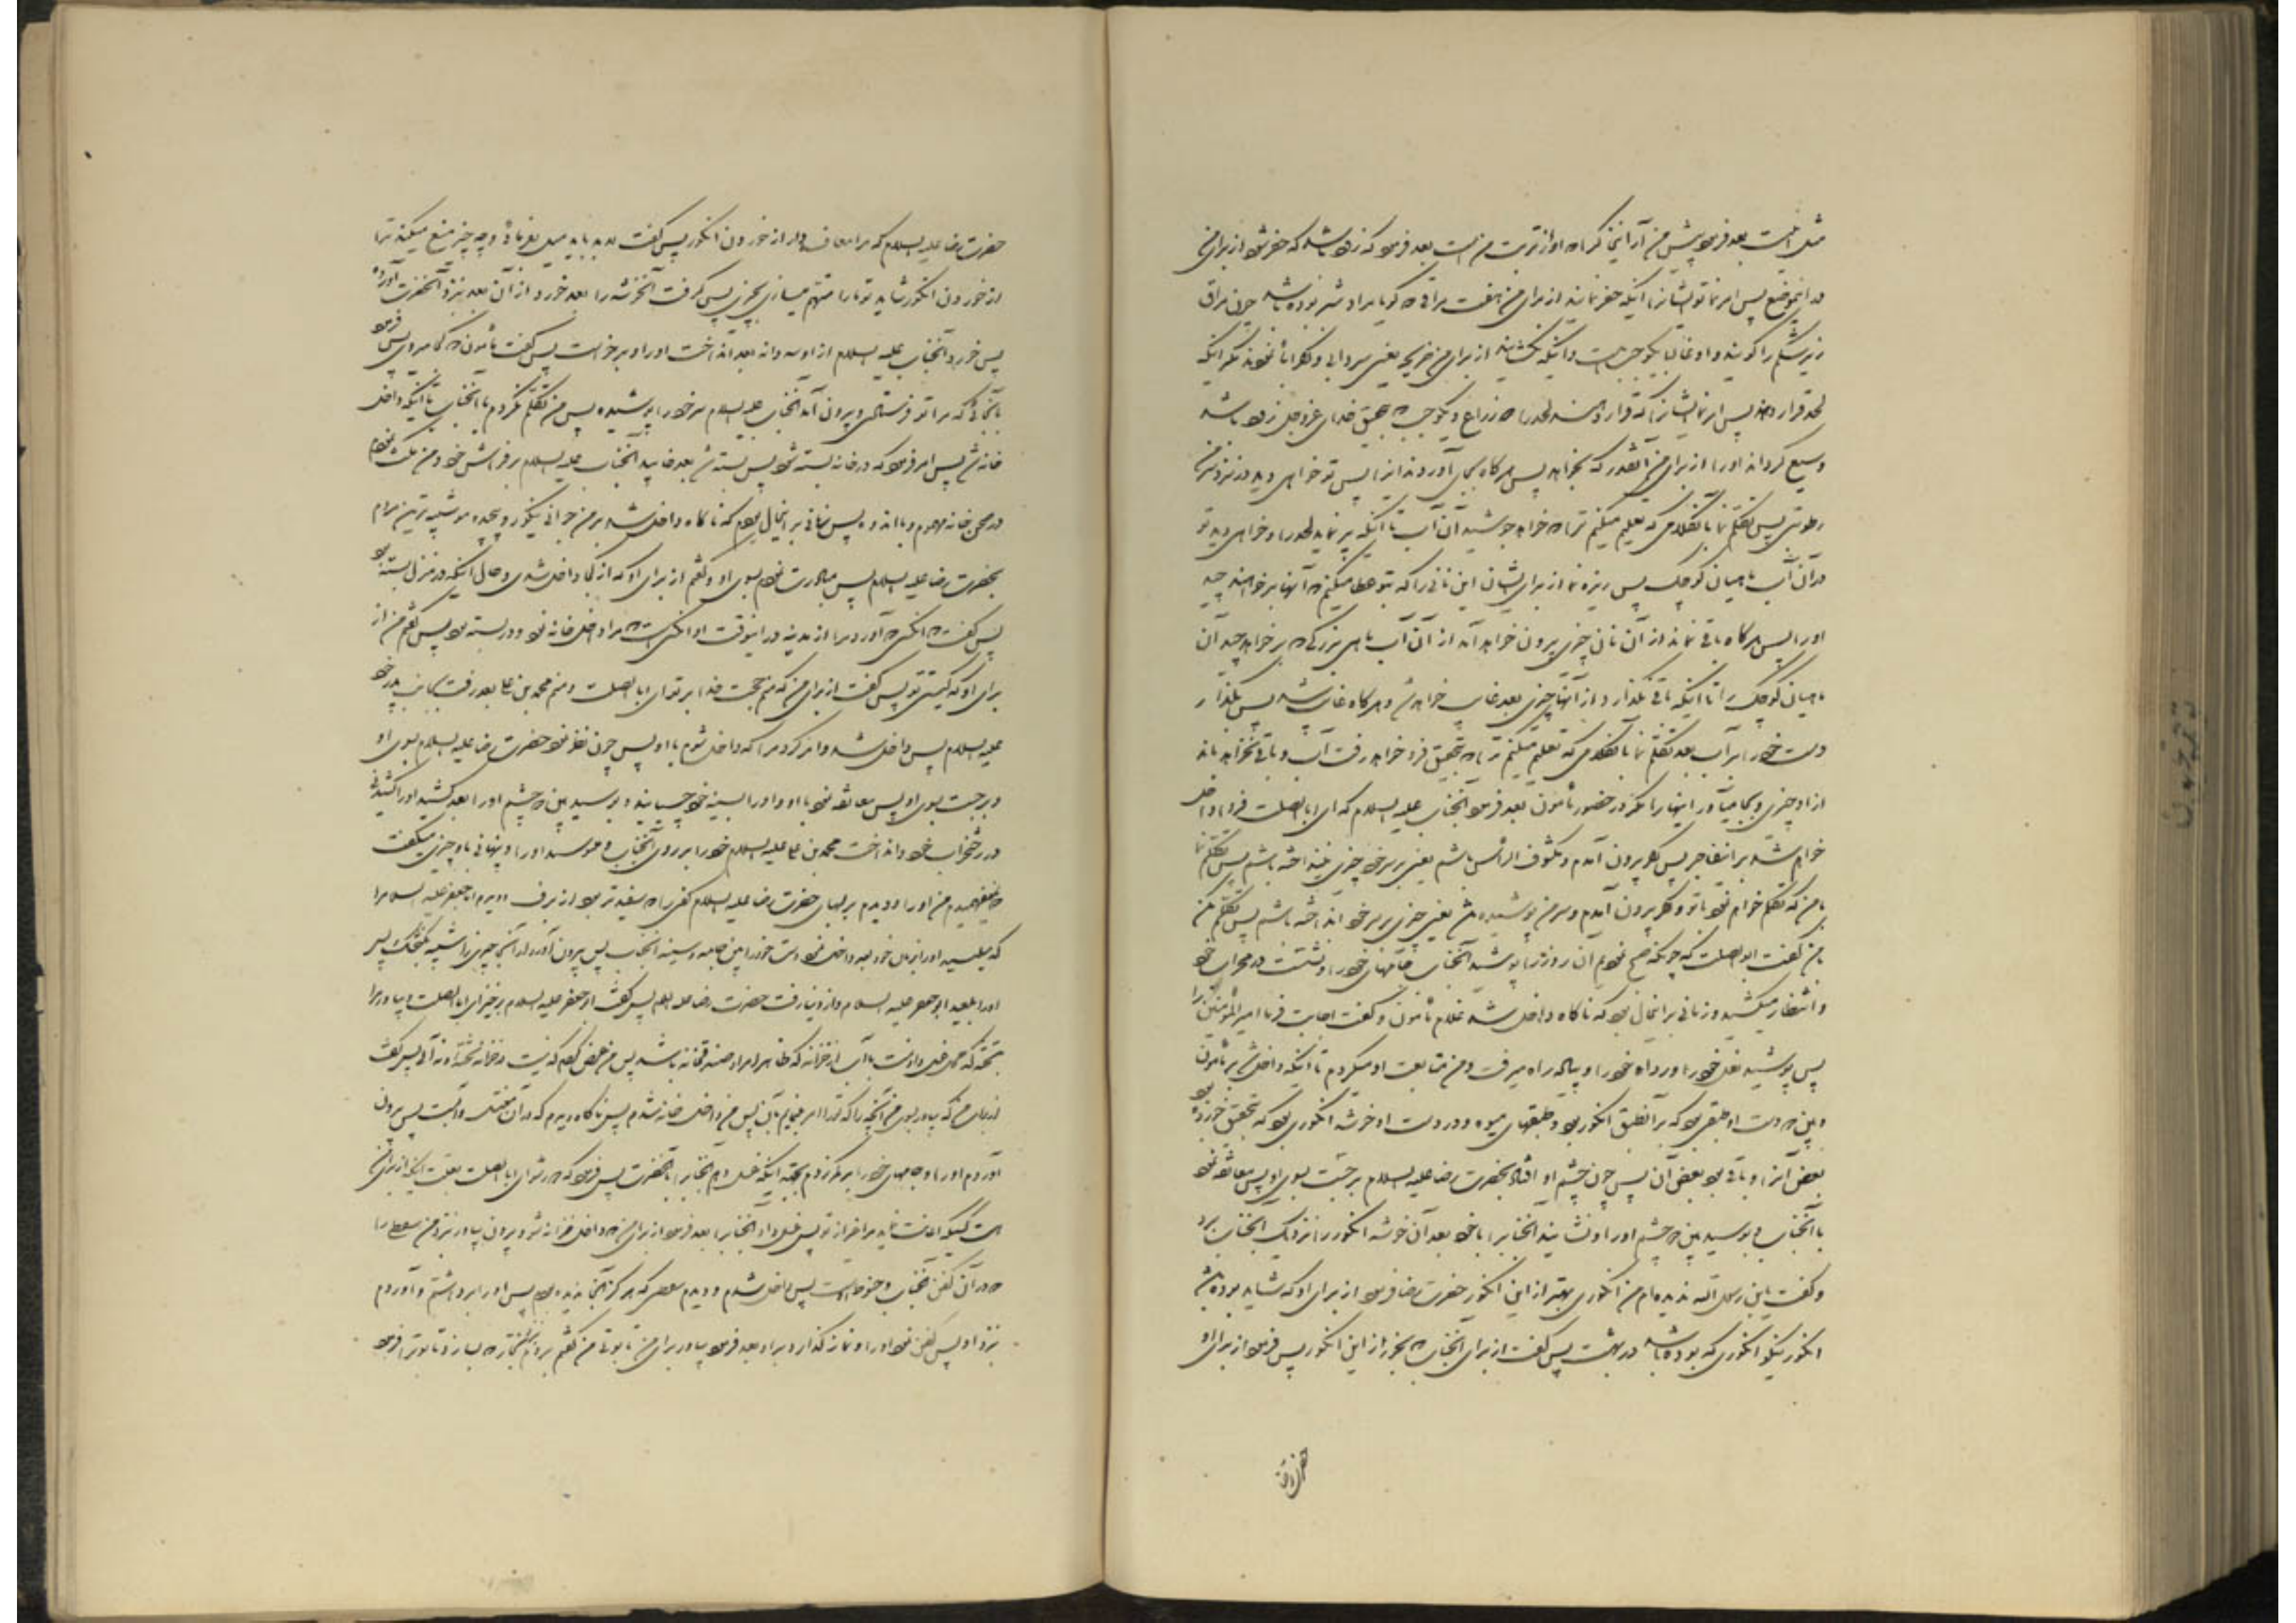 مثل اینست بعد فرمود پیش من آر آنجا که او از تربت من است بعد فرمود که زود باشد که حفر شود از برای من
در اینموضع پس امر نما تو ایشانرا اینکه حفر نمایند از برای من هفت مراقی که گویا مراد شبر بوده باشد چون مراق
زیر شکم را گویند و اینکه بگشایند از برای من ضریحه یعنی سردابی و اگر ابا نمودند مگر اینکه
لحد قرار دهند پس امر نما ایشانرا که قرار دهند لحد را دو ذراع و یکوجب که بتحقیق خدای عزوجل زود باشد
وسیع گرداند او را از برای من آنقدر که بخواهد پس هرگاه بجای آوردند اینرا پس تو خواهی دید در نزد سر من
رطوبتی پس تکلم نما بآنکلامی که تعلیم میکنم ترا که خواهد جوشید آن آب تا اینکه پر نماید لحد را و خواهی دید تو
در آن آب ماهیان کوچک پس ریزه نما از برای ایشان این نانی را که بتو عطا میکنم که آنها برخواهند چید
او را پس هرگاه باقی نماند از آن نان چیزی بیرون خواهد آمد از آن آب ماهی بزرگی که برخواهد چید آن
ماهیان کوچک را تا اینکه باقی نگذارد از آنها چیزی بعد غایب خواهد شد و هرگاه غایب شد پس بگذار
دست خود را بر آب بعد تکلم نما بآنکلامی که تعلیم میکنم ترا که بتحقیق فرو خواهد رفت آب و باقی نخواهد ماند
از او چیزی و بجا میآور اینها را مگر در حضور مأمون بعد فرمود آنجناب علیه السلام که ای ابا صلت فردا داخل
خواهم شد بر این فاجر پس اگر بیرون آمدم و مکشوف الرأس باشم یعنی بر سر خود چیزی نینداخته باشم پس تکلم نما
با من که تکلم خواهم نمود با تو و اگر بیرون آمدم و سر من پوشیده باشد یعنی چیزی بر سر خود انداخته باشم پس تکلم مکن
با من گفت ابو صلت که چونکه صبح نمودیم آن روز را پوشید آنجناب جامهای خود را و نشست در محراب خود
و انتظار میکشید و زمانی بر اینحال بود که ناگاه داخل شد غلام مأمون و گفت اجابت فرما امیر المؤمنین را
پس پوشید نعل خود را و رداه خود را و پیاده راه میرفت و من متابعت او میکردم تا اینکه داخل شد بر مأمون
و بین دو دست او طبقی بود که بر آنطبق انگور بود و طبقهای میوه و در دست او خوشه انگوری بود که بتحقیق خورده بود
بعض آنرا و باقی بود بعض آن پس چون چشم او افتاد بحضرت رضا علیه السلام برجست بسوی او پس معانقه نمود
با آنجناب و بوسید بین دو چشم او را و نشانید آنجناب را با خود بعد آن خوشه انگور را نزدیک آنجناب برد
و گفت یابن رسول الله ندیده‌ام من انگوری بهتر از این انگور حضرت رضا فرمود از برای او که شاید بوده باشد
انگور نیکو انگوری که بوده باشد در بهشت پس گفت از برای آنجناب که بخور از این انگور پس فرمود از برای او
حضرت رضا علیه السلام که مرا معاف دار از خوردن انگور پس گفت لابد باید میل بفرمائی و چه چیز منع میکند ترا
از خوردن انگور شاید تو ما را متهم میسازی بچیزی پس گرفت آنخوشه را بعد خورد از آن بعد بنزد آنحضرت آورد
پس خورد آنجناب علیه السلام از او سه دانه بعد انداخت او را و برخواست پس گفت مأمون که کجا میروی پس فرمود
بآنجائی که مرا تو فرستادی و بیرون آمد آنجناب علیه السلام سر خود را پوشیده پس من تکلم نکردم با آنجناب تا اینکه داخل
خانه شد پس امر فرمود که در خانه بسته شود پس بسته شد بعد خوابید آنجناب علیه السلام بر فراش خود و من مکث نمودم
در صحن خانه مهموم و با اندوه پس زمانی بر اینحال بودم که ناگاه داخل شد بر من جوانی نیکو رو پیچیده مو شبیه‌ترین مردم
بحضرت رضا علیه السلام پس مبادرت نمودم بسوی او و گفتم از برای او که از کجا داخل شدی و حال اینکه در منزل بسته بود
پس گفت آنکسی که آورد مرا از مدینه در اینوقت او آنکسی است که مرا داخل خانه نمود و در بسته بود پس گفتم من از
برای او که کیستی تو پس گفت از برای من که منم حجت خدا بر تو ای ابا صلت و منم محمد بن علی بعد رفت بجانب پدر خود
علیه السلام پس داخل شد و امر کرد مرا که داخل شوم با او پس چون نظر نمود حضرت رضا علیه السلام بسوی او
برجست بسوی او پس معانقه نمود با او و او را بسینه خود چسبانید و بوسید بین دو چشم او را بعد کشید او را کشیدنی
در رختخواب خود و انداخت محمد بن علی علیه السلام خود را بر روی آنجناب و میبوسید او را و پنهانی باو چیزی میگفت
که نمیفهمیدم من او را و دیدم بر لبهای حضرت رضا علیه السلام کفی را که سفیدتر بود از برف و دیدم ابا جعفر علیه السلام را
که میلیسید او را بزبان خود بعد داخل نمود دست خود را بین جامه و سینه آنجناب پس بیرون آورد از آن چیزی را شبیه بگنجشک پس
او را بلعید ابو جعفر علیه السلام و از دنیا رفت حضرت رضا علیه السلام پس گفت ابو جعفر علیه السلام برخیز ای ابا الصلت و بیاور مرا
تخته که محل غسل دادنست با آب از خزانه پس من عرض کردم که نیست در خزانه تخته و نه آبی پس گفت
از برای من که بیاور بسوی من آنچه را که ترا امر مینمایم بآن پس من داخل خانه شدم پس ناگاه دیدم که در آن مغتسل و آبست پس بیرون
آوردم او را و جامهای خود را بر کمر زدم بجهة اینکه غسل دهم آنجناب را با آنحضرت پس فرمود که دور شو ای ابا صلت بعلت اینکه از برای من
است کسیکه اعانت نماید مرا غیر از تو پس غسل داد آنجناب را بعد فرمود از برای من که داخل خزانه شو و بیرون بیاور بنزد من سفطی را
که در آن کفن آنجناب و حنوط است پس داخل شدم و دیدم سفطی که هرگز آنجا ندیده بودم پس او را برداشتم و آوردم
بنزد او پس کفن نمود او را و نماز گذارد بر او بعد فرمود بیاور برای من تابوتی من گفتم بروم بنزد نجار که بسازد تابوت را فرمود